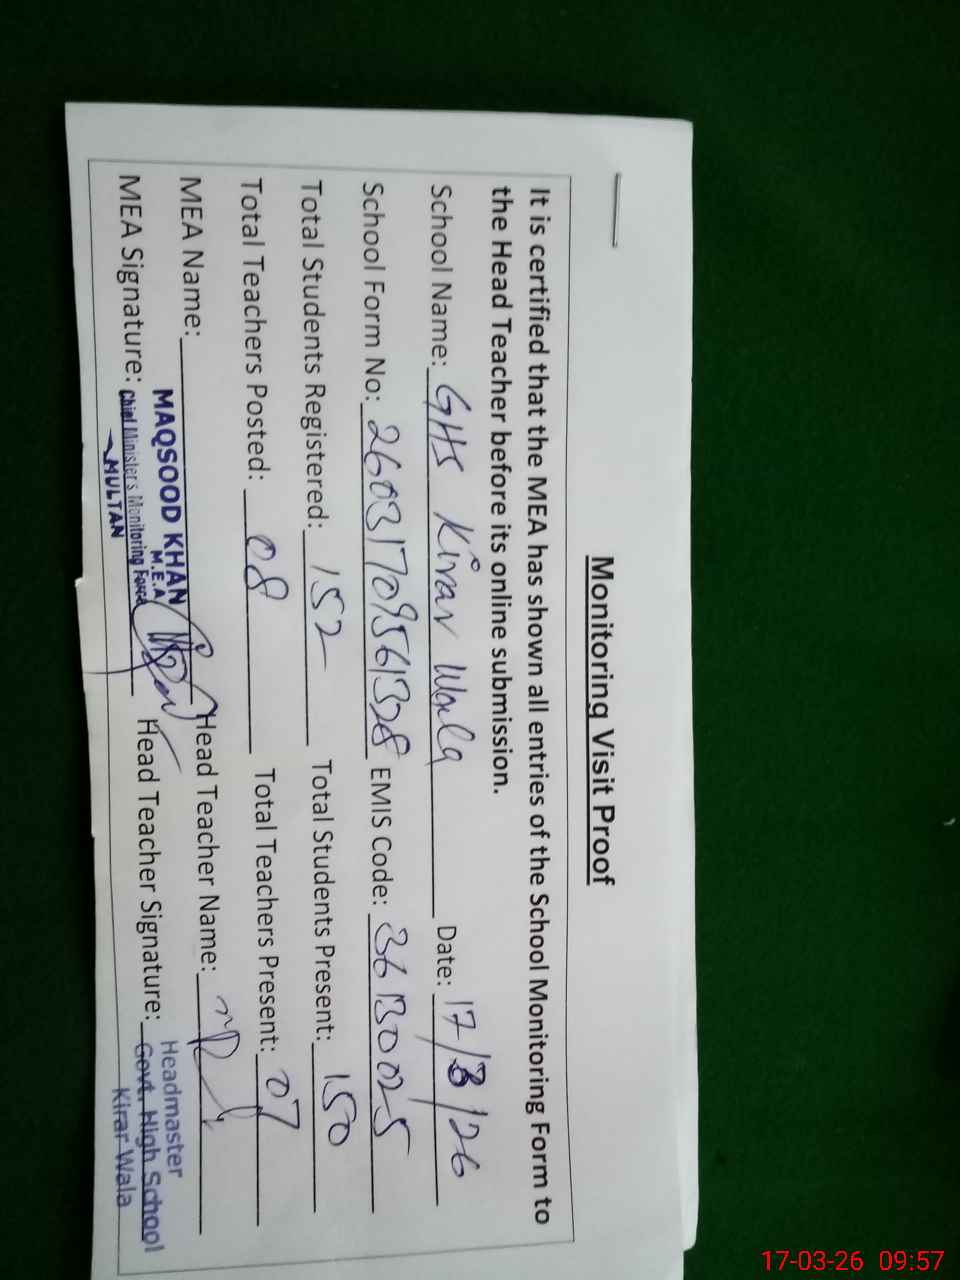 Monitoring Visit Proof
It is certified that the MEA has shown all entries of the School Monitoring Form to
the Head Teacher before its online submission.
School Name: GHS Kirar Wala Date: 17/3/26
School Form No: 26031709561328 EMIS Code: 36130025
Total Students Registered: 152 Total Students Present: 150
Total Teachers Posted: 08 Total Teachers Present: 07
MEA Name: MAQSOOD KHAN Head Teacher Name:
M.E.A
MEA Signature: Chief Minister's Monitoring Force Head Teacher Signature: Headmaster
MULTAN Govt. High School
Kirar Wala
17-03-26 09:57